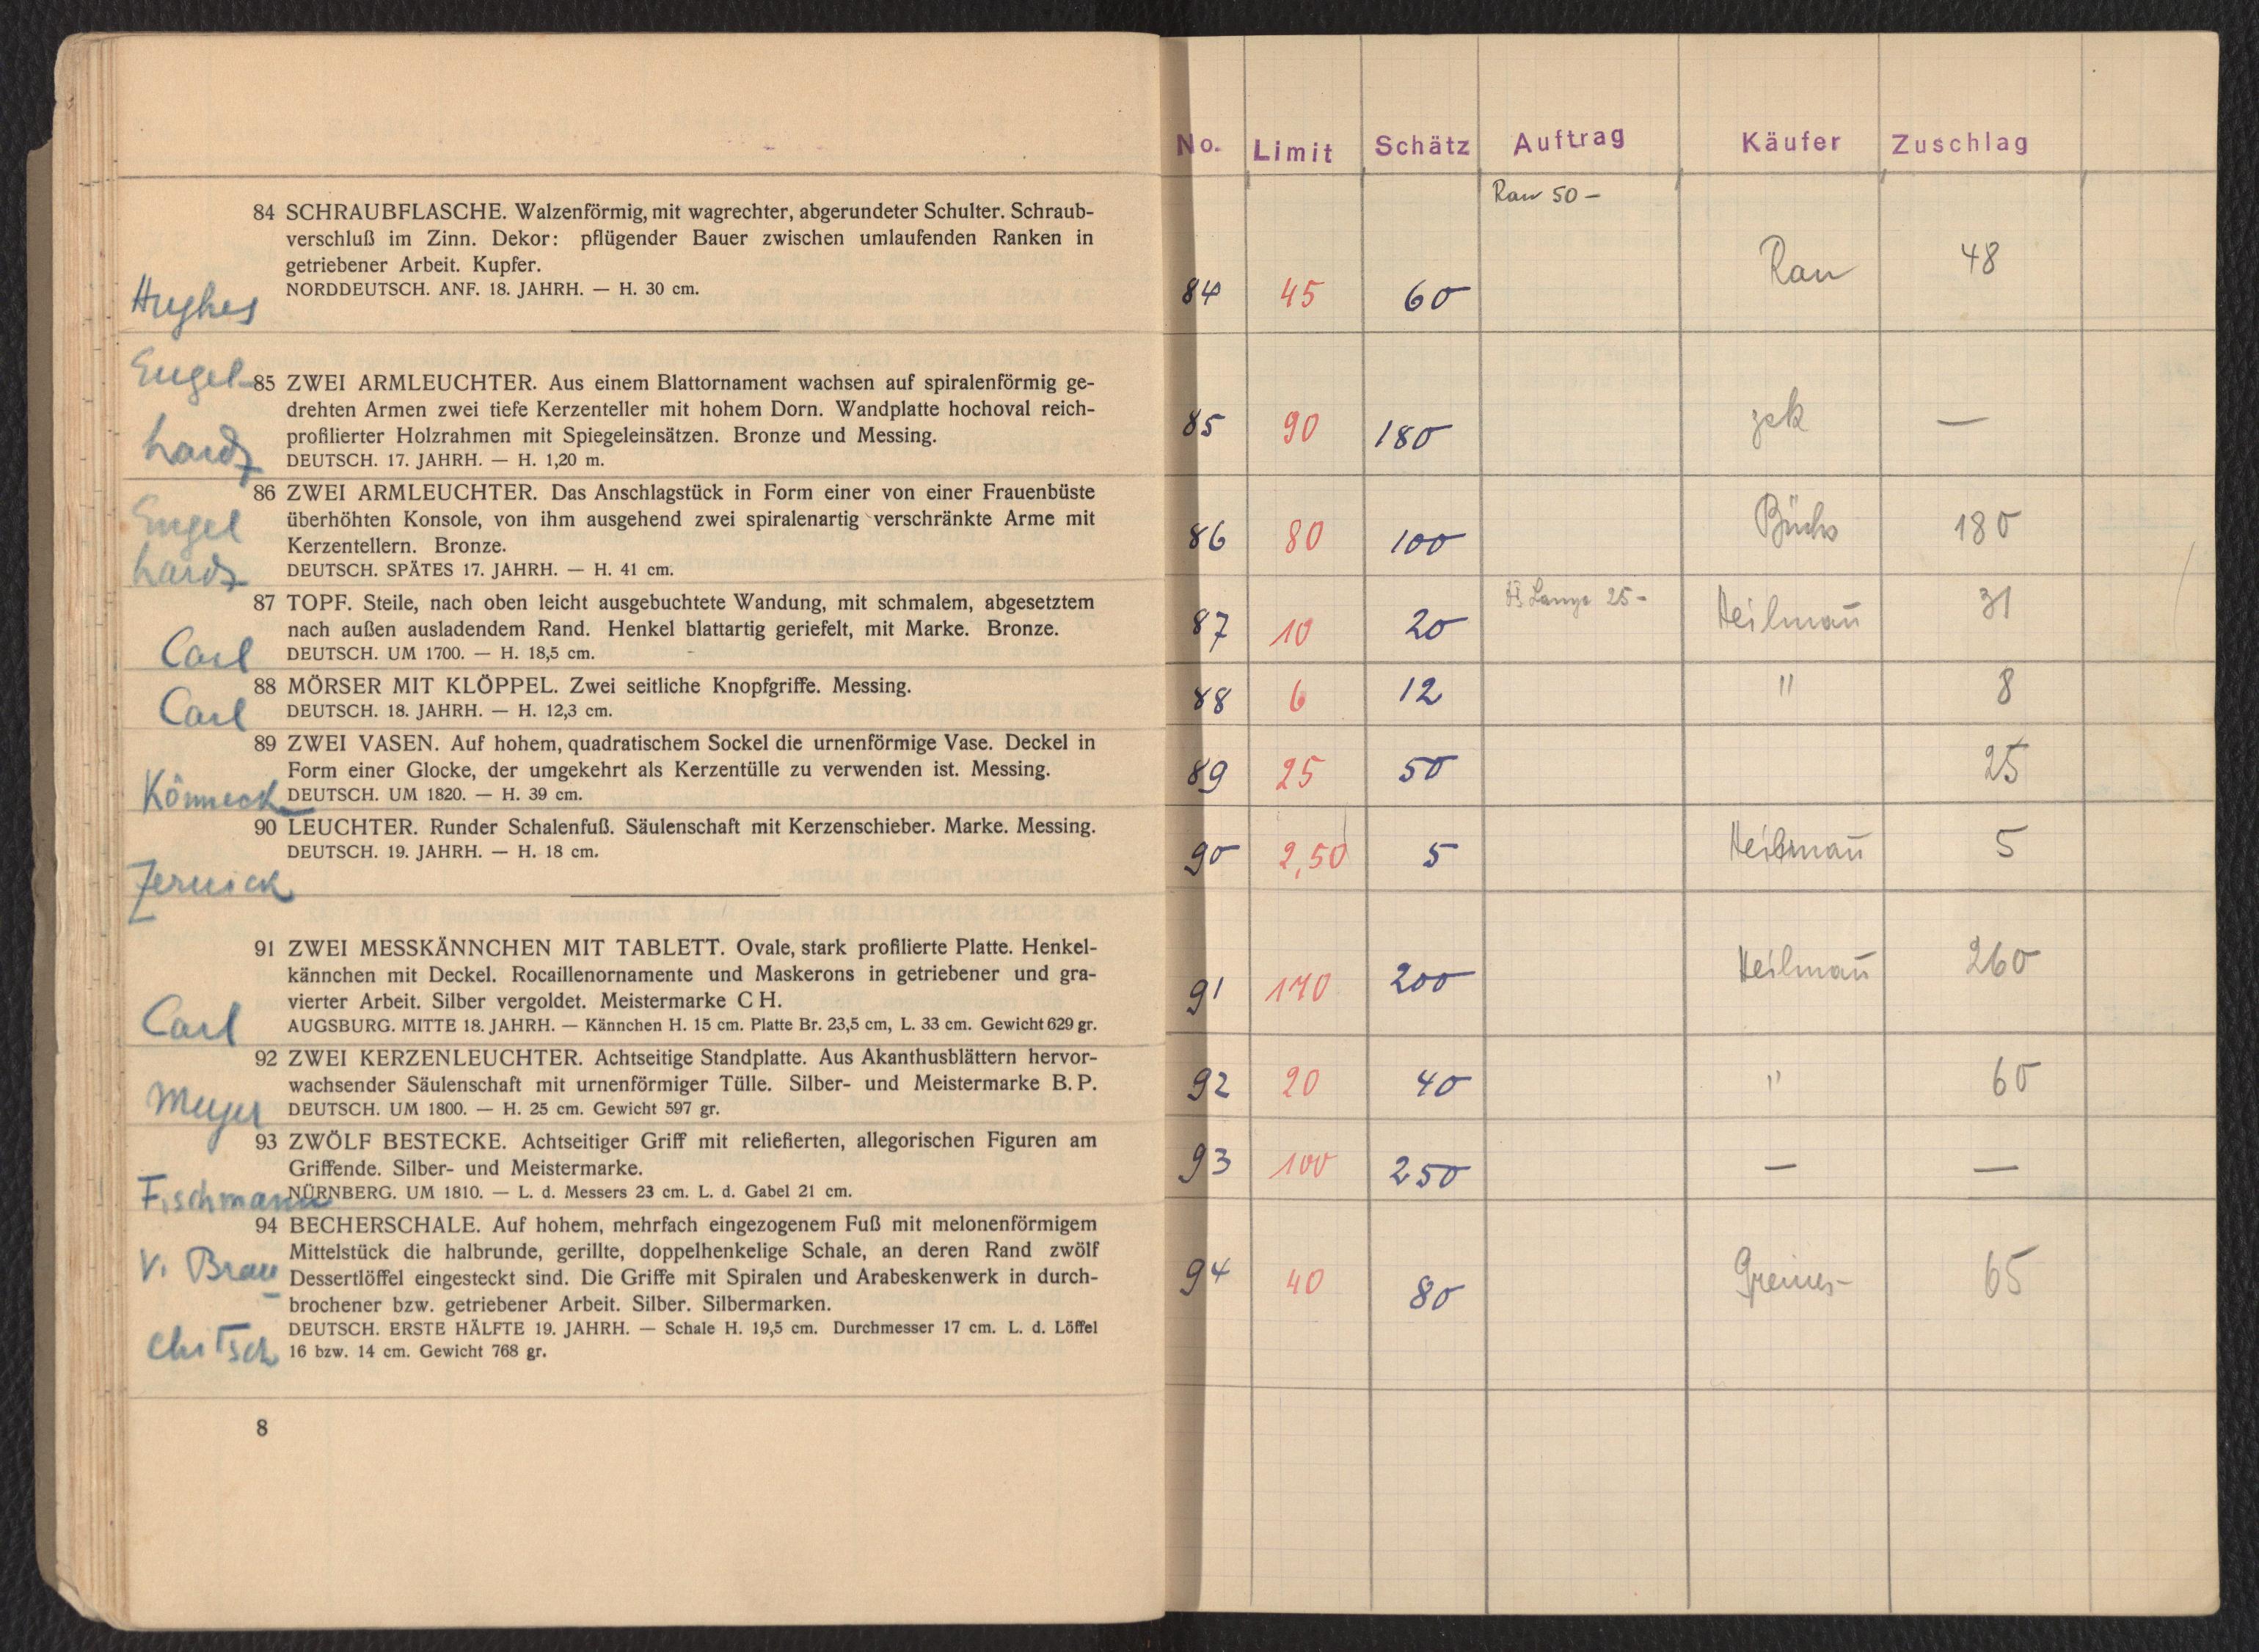 84 SCHRAUBFLASCHE. Walzenförmig, mit wagrechter, abgerundeter Schulter. Schraub-
verschluß im Zinn. Dekor: pflügender Bauer zwischen umlaufenden Ranken in
getriebener Arbeit. Kupfer.
NORDDEUTSCH. ANF. 18. JAHRH. — H. 30 cm.
Hughes
Engel-
85 ZWEI ARMLEUCHTER. Aus einem Blattornament wachsen auf spiralenförmig ge-
drehten Armen zwei tiefe Kerzenteller mit hohem Dorn. Wandplatte hochoval reich-
profilierter Holzrahmen mit Spiegeleinsätzen. Bronze und Messing.
hardt
DEUTSCH. 17. JAHRH. — H. 1,20 m.
86 ZWEI ARMLEUCHTER. Das Anschlagstück in Form einer von einer Frauenbüste
Engel
überhöhten Konsole, von ihm ausgehend zwei spiralenartig verschränkte Arme mit
Kerzentellern. Bronze.
hardt
DEUTSCH. SPÄTES 17. JAHRH. — H. 41 cm.
87 TOPF. Steile, nach oben leicht ausgebuchtete Wandung, mit schmalem, abgesetztem
nach außen ausladendem Rand. Henkel blattartig geriefelt, mit Marke. Bronze.
Carl
DEUTSCH. UM 1700. — H. 18,5 cm.
88 MÖRSER MIT KLÖPPEL. Zwei seitliche Knopfgriffe. Messing.
Carl
DEUTSCH. 18. JAHRH. — H. 12,3 cm.
89 ZWEI VASEN. Auf hohem, quadratischem Sockel die urnenförmige Vase. Deckel in
Form einer Glocke, der umgekehrt als Kerzentülle zu verwenden ist. Messing.
Könneck
DEUTSCH. UM 1820. — H. 39 cm.
90 LEUCHTER. Runder Schalenfuß. Säulenschaft mit Kerzenschieber. Marke. Messing.
DEUTSCH. 19. JAHRH. — H. 18 cm.
Jernick
91 ZWEI MESSKÄNNCHEN MIT TABLETT. Ovale, stark profilierte Platte. Henkel-
kännchen mit Deckel. Rocaillenornamente und Maskerons in getriebener und gra-
vierter Arbeit. Silber vergoldet. Meistermarke C H.
Carl
AUGSBURG. MITTE 18. JAHRH. — Kännchen H. 15 cm. Platte Br. 23,5 cm, L. 33 cm. Gewicht 629 gr.
92 ZWEI KERZENLEUCHTER. Achtseitige Standplatte. Aus Akanthusblättern hervor-
wachsender Säulenschaft mit urnenförmiger Tülle. Silber- und Meistermarke B. P.
Meyer
DEUTSCH. UM 1800. — H. 25 cm. Gewicht 597 gr.
93 ZWÖLF BESTECKE. Achtseitiger Griff mit reliefierten, allegorischen Figuren am
Griffende. Silber- und Meistermarke.
Fischmann
NÜRNBERG. UM 1810. — L. d. Messers 23 cm. L. d. Gabel 21 cm.
94 BECHERSCHALE. Auf hohem, mehrfach eingezogenem Fuß mit melonenförmigem
Mittelstück die halbrunde, gerillte, doppelhenkelige Schale, an deren Rand zwölf
v. Brau
Dessertlöffel eingesteckt sind. Die Griffe mit Spiralen und Arabeskenwerk in durch-
brochener bzw. getriebener Arbeit. Silber. Silbermarken.
DEUTSCH. ERSTE HÄLFTE 19. JAHRH. — Schale H. 19,5 cm. Durchmesser 17 cm. L. d. Löffel
chitsch
16 bzw. 14 cm. Gewicht 768 gr.
8
No. Limit Schätz Auftrag Käufer Zuschlag
Rau 50 –
84 45 60 Rau 48
85 90 180 —
86 80 100 Büchs 180
87 10 20 Lange 25 – Heilmañ 31
88 6 12 " 8
89 25 50 25
90 2,50 5 Heilmañ 5
91 140 200 Heilmañ 260
92 20 40 " 60
93 100 250 — —
94 40 80 65